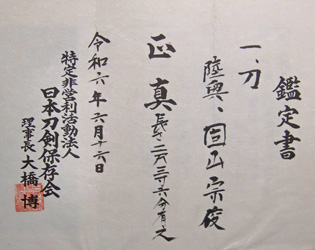 鑑定書
一、刀
陸奥、固山宗俊
正真 長さ二尺三寸六分有之
令和六年六月十六日
特定非営利活動法人
日本刀剣保存会
理事長 大橋 博